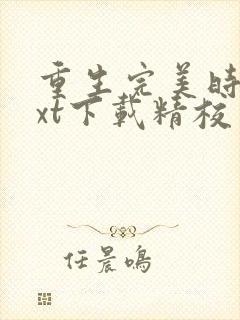 重生完美時
xt下載精校
任晨鳴